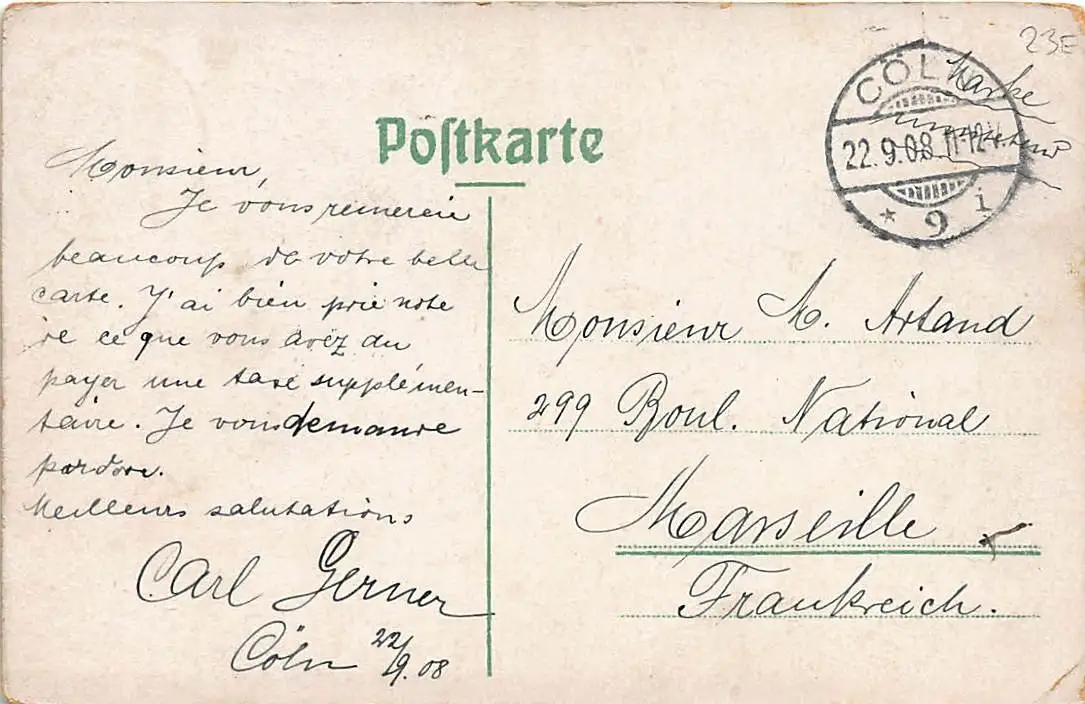 Postkarte
23E
CÖLN
22.9.08.11-12V.
* 9 i
Marke
umstehend
Monsieur,
Je vous remercie
beaucoup de votre belle
carte. J'ai bien prie note
de ce que vous avez du
payer une taxe supplémen-
taire. Je vous demande
pardon.
Meilleurs salutations
Carl Gerner
Cöln 22/9.08
Monsieur M. Artaud
299 Boul. National
Marseille
Frankreich.